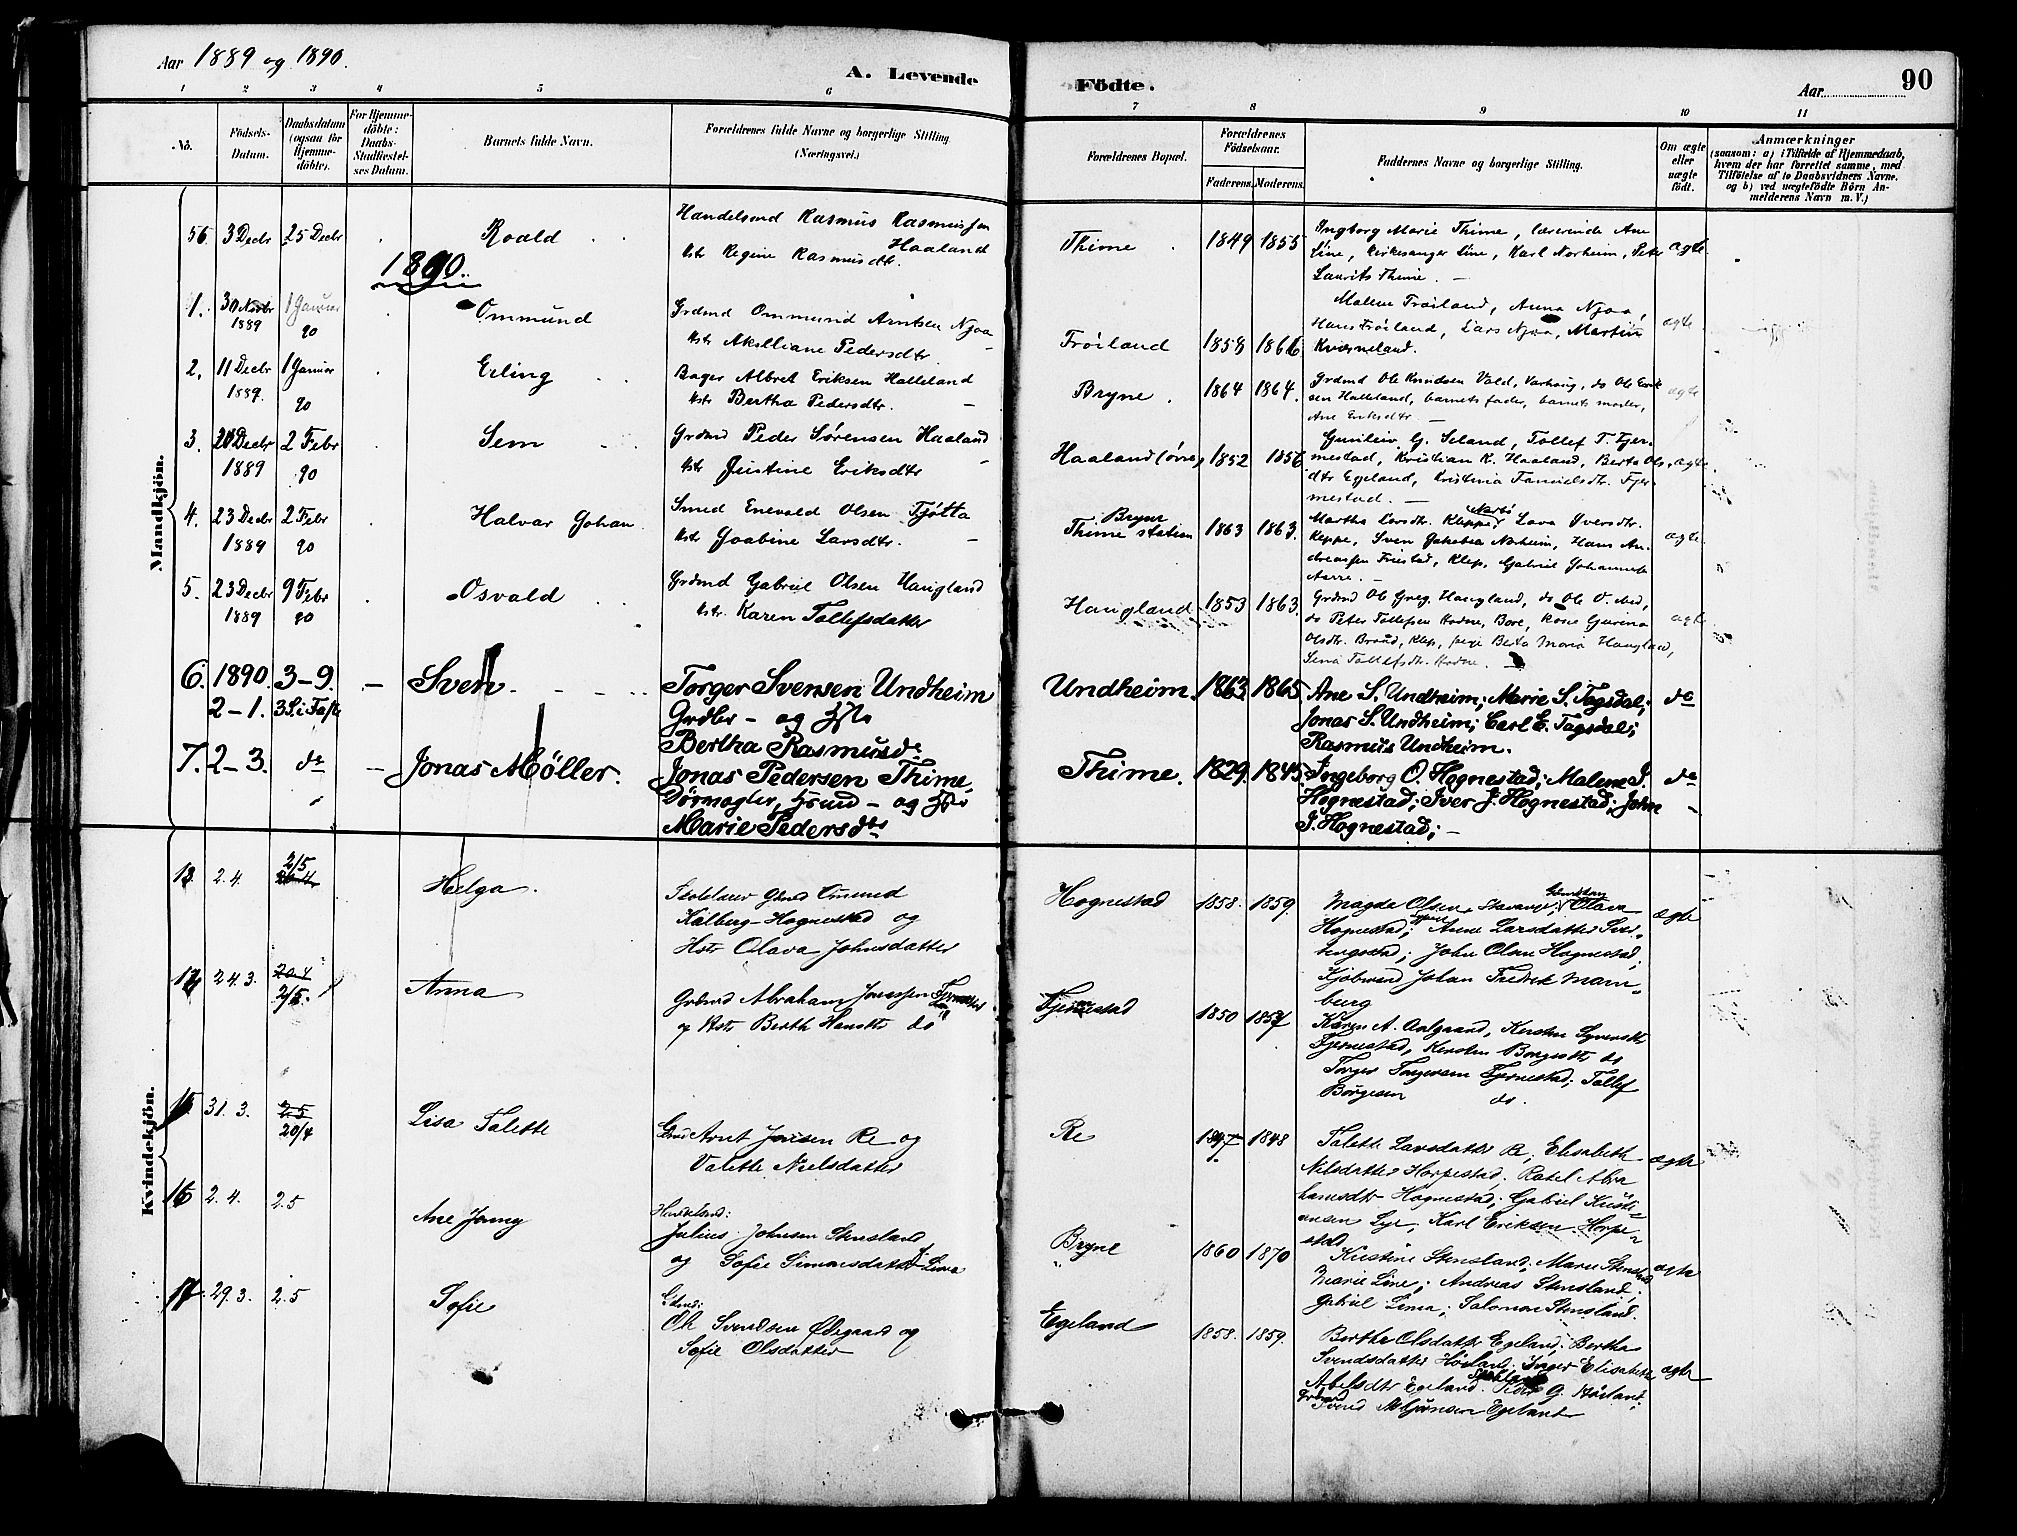 Aar 1889 og 1890.
A. Levende
Födte.
Aar
90
1 2 3 4 5 6 7 8 9 10 11
No.
Födsels-
Datum.
Daabsdatum
(ogsaa for
Hjemme-
döbte).
For Hjemme-
döbte:
Daabs-
Stadfæstel-
ses Datum.
Barnets fulde Navn.
Forældrenes fulde Navne og borgerlige Stilling
(Næringsvei.)
Forældrenes Bopæl.
Forældrenes
Födselsaar.
Faderens. Moderens.
Faddernes Navne og borgerlige Stilling.
Om ægte
eller
uægte
födt.
Anmærkninger
(saasom: a) i Tilfælde af Hjemmedaab,
hvem der har forrettet samme, med
Tilföielse af to Daabsvidners Navne,
og b) ved uægtefödte Börn An-
melderens Navn m. V.)
Mandkjön.
56. 3 Decbr 25 Decbr Roald
Handelsmd Rasmus Rasmussen
Haaland
Kstr Regine Rasmusdtr.
Thime 1849 1855
Ingborg Marie Thime, lærerinde Ane
Line, Kirkesanger Line, Karl Norheim, Peter
Laurits Thime. ægte
1890.
1. 30 Novbr 1 Januar Ommund
1889 90
Grdmd Ommund Arntsen Njaa
Kstr Akselliane Pedersdtr.
Fröiland 1858 1861
Malene Fröiland, Anna Njaa,
Hans Fröiland, Lars Njaa, Martin
Kværneland. ægte
2. 11 Decbr 1 Januar Erling
1889. 90
Bager Albret Eriksen Halleland
Kstr Bertha Pedersdtr.
Bryne. 1864 1864.
Grdmd Ole Knudsen Vald, Varhaug, do Ole Erik
sen Halleland, barnets fader, barnets moder,
Ane Eriksdtr. ægte
3. 20 Decbr 2 Febr Sem
1889 90
Grdmd Peder Sørensen Haaland
Kstr Justine Eriksdtr
Haaland (øvre) 1852 1856
Gunleiv G. Seland, Tollef T. Tjer-
mestad, Kristian K. Haaland, Berta Ols-
dtr Egeland, Kristina Tanielsdtr. Tjer-
mestad. ægte
4. 23 Decbr 2 Febr Halvar Johan
1889 90
Smed Enevald Olsen Tjøtta
Kstr Jaabine Larsdtr.
Bryne
Thime station 1863 1863.
Nærbø
Martha Larsdtr. Kleppe, Lava Iversdtr.
Kleppe, Sven Jakobsa Norheim, Hans An-
dreassen Friestad, Klep, Gabriel Johannes
Aarre. ægte
5. 23 Decbr 9 Febr Osvald
1889 90
Grdmd Gabriel Olsen Haugland
Kstr. Karen Tollefsdatter
Haugland 1853 1863.
Grdmd Ole Greg. Haugland, do Ole O. Aed,
do Peter Tollefsen Hodne, Bore, kone Gurina
Olsdtr. Braud, Klep, pige Berta Maria Haugland,
Sena Tollefsdtr. Hodne. ægte
6. 1890. 3-9. Sven
2-1. 3 S. i Faste
Torger Svensen Undheim
Grdbr - og Hstr
Bertha Rasmusdr.
Undheim. 1863 1865.
Ane S. Undheim; Marie S. Tagsdal;
Jonas S. Undheim; Carl E. Tagsdal;
Rasmus Undheim. do
7. 2-3. do Jonas Möller.
Jonas Pedersen Thime,
Dørmagler, Hsmd - og Hstr
Marie Pedersdtr
Thime. 1829. 1845.
Ingeborg O. Hognestad; Malene J.
Hognestad; Iver J. Hognestad; John
J. Hognestad; do
Kvindekjön.
13 2.4. 2/5 Helga.
Skolelærer Gbmd Ommund
Kalberg-Hognestad og
Hstr Olava Johnsdatter
Hognestad 1858. 1859.
Magda Olsen, Stavanger; Olava
Hognestad; Anne Larsdatter
John Olsen Hognestad;
Kjøbmand Johan Fredrik Mam-
berg ægte
14 24.3. 20.4 Anna
2/5.
Grbmd Abraham Jonassen Tjermestad
og Kstr Berth Hansdtr do
Tjermestad 1850 1857
Karen A. Aalgaard, Kirsten Syversdtr
Tjermestad, Kersten Børgesdtr do
Torger Torgersen Tjermestad; Tollef
Børgesen do.
15 31.3. 2.5 Lisa Talette
20/4
Gbmd Arnt Jonsen Re og
Valette Nielsdatter
Re 1847 1848
Talette Larsdatter Re, Elisabeth
Nilsdatter Horpestad, Rakel Abra
hamsdtr Hognestad; Gabriel Kristi-
ansen Lye, Karl Eriksen Horpe-
stad ægte
16 2.4. 2.5 Ane Jenny
Handelsmd:
Julius Johnsen Stensland
og Sofie Simonsdatter Lima
Bryne 1860 1870
Kristine Stensland, Marie Stensland
Marie Line; Andreas Stensland;
Gabriel Lima; Salomon Stensland. ægte
17 29.3. 2.5 Sofie
Gbmd:
Ole Svendsen Ødegaard og
Sofie Olsdatter
Egeland 1858. 1859.
Berthe Olsdatter Egeland; Bertha
Svendsdatter Høiland; Inger Elisabeth
Abelsdtr Egeland. Peder G. Høiland;
Grbmd Svend Asbjørnsen Egeland ægte